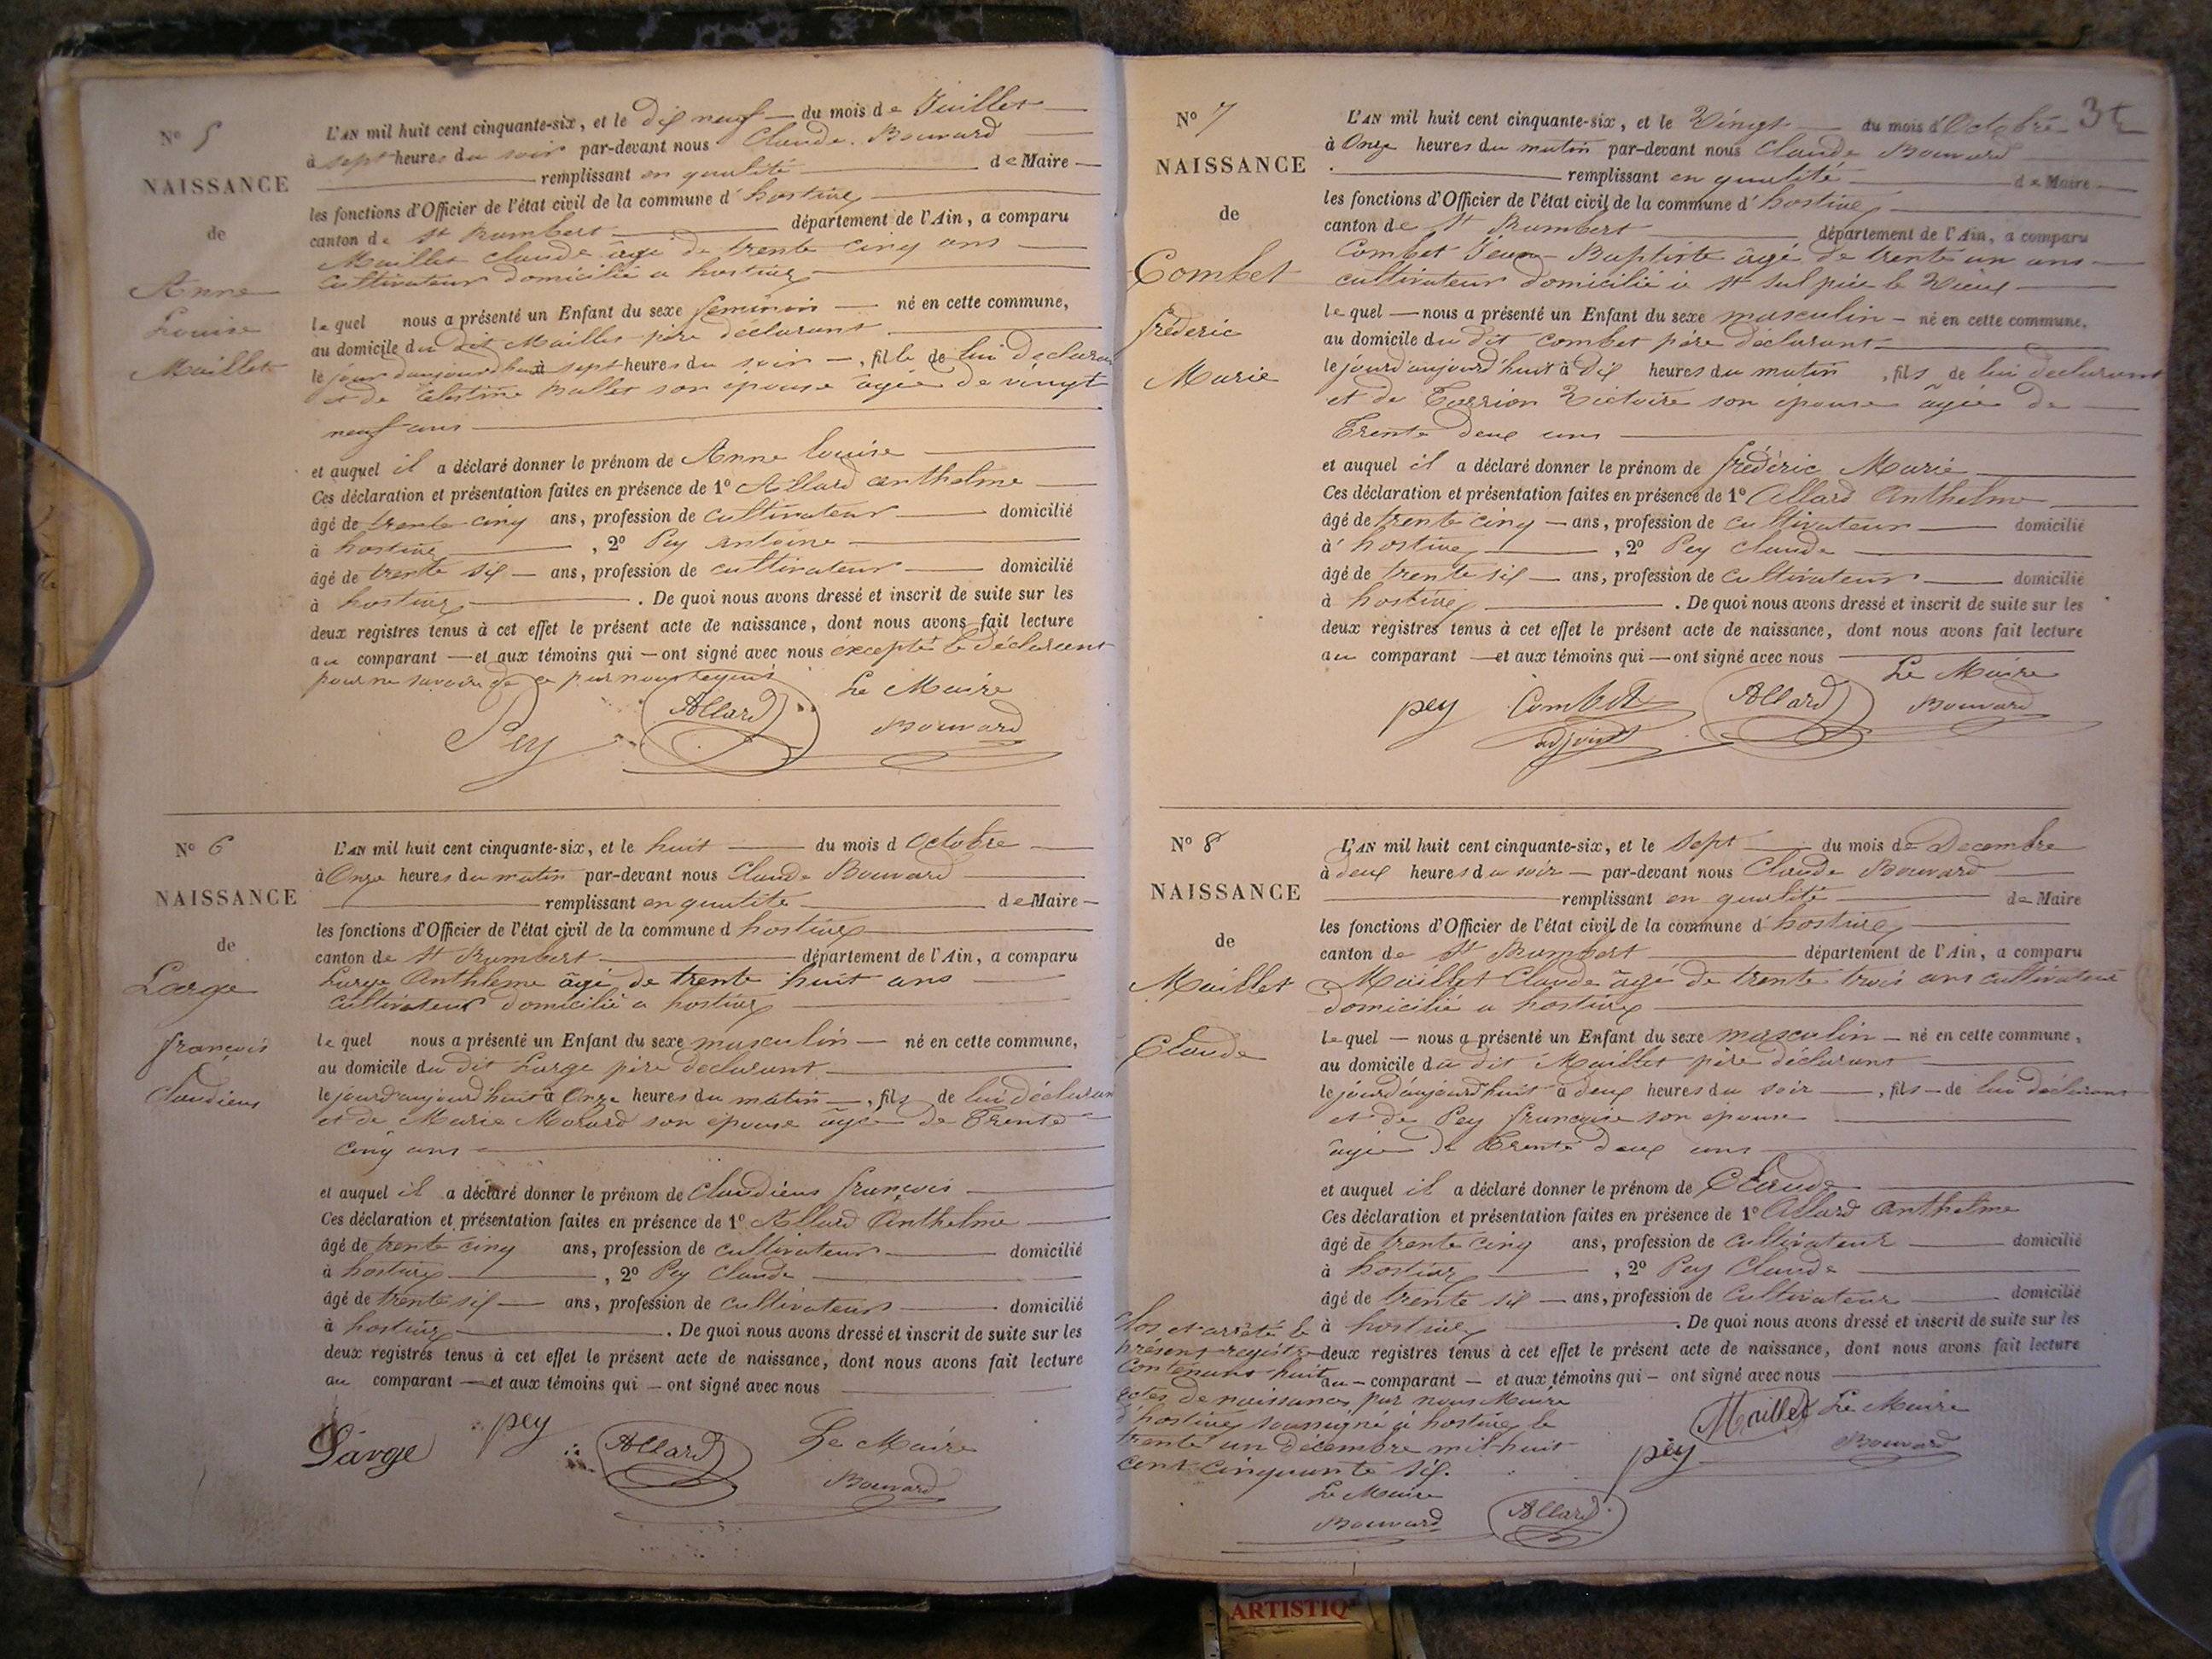 N° 5
NAISSANCE
de
Anne
Louise
Maillet
L'AN mil huit cent cinquante-six, et le dix neuf du mois de Juillet
à sept heures du soir par-devant nous Claude Bouvard
remplissant en qualité de Maire
les fonctions d'Officier de l'état civil de la commune d'hostiaz
canton de St Rambert département de l'Ain, a comparu
Maillet Claude âgé de trente cinq ans
cultivateur domicilié a hostiaz
lequel nous a présenté un Enfant du sexe feminin né en cette commune,
au domicile du dit Maillet père déclarant
le jour daujourdhui à sept heures du soir, fille de lui déclarant
et de Célestine Ballet son epouse âgée de vingt
neuf ans
et auquel il a déclaré donner le prénom de Anne Louise
Ces déclaration et présentation faites en présence de 1° Allard anthelme
âgé de trente cinq ans, profession de cultivateur domicilié
à hostiaz, 2° Pey Antoine
âgé de trente six ans, profession de cultivateur domicilié
à hostiaz. De quoi nous avons dressé et inscrit de suite sur les
deux registres tenus à cet effet le présent acte de naissance, dont nous avons fait lecture
au comparant et aux témoins qui ont signé avec nous excepté le déclarant
pour ne savoir de ce par nous requis
Le Maire
Pey Allard Bouvard
N° 6
NAISSANCE
de
Large
françois
Claudius
L'AN mil huit cent cinquante-six, et le huit du mois d Octobre
à Onze heures du matin par-devant nous Claude Bouvard
remplissant en qualité de Maire
les fonctions d'Officier de l'état civil de la commune d hostiaz
canton de St Rambert département de l'Ain, a comparu
Large Anthleme âgé de trente huit ans
cultivateur domicilié a hostiaz
lequel nous a présenté un Enfant du sexe masculin né en cette commune,
au domicile du dit Large père déclarant
le jourd'aujourd'huit à Onze heures du matin, fils de lui déclarant
et de Marie Molard son épouse âgée de Trente
cinq ans
et auquel il a déclaré donner le prénom de Claudius françois
Ces déclaration et présentation faites en présence de 1° Allard Anthelme
âgé de trente cinq ans, profession de cultivateur domicilié
à hostiaz, 2° Pey Claude
âgé de trente six ans, profession de cultivateur domicilié
à hostiaz. De quoi nous avons dressé et inscrit de suite sur les
deux registres tenus à cet effet le présent acte de naissance, dont nous avons fait lecture
au comparant et aux témoins qui ont signé avec nous
Large pey Allard Le Maire
Bouvard
35
N° 7
NAISSANCE
de
Combet
fréderic
Marie
L'AN mil huit cent cinquante-six, et le Vingt du mois d'Octobre
à Onze heures du matin par-devant nous Claude Bouvard
remplissant en qualité de Maire
les fonctions d'Officier de l'état civil de la commune d'hostiaz
canton de St Rambert département de l'Ain, a comparu
Combet Jean-Baptiste âgé de trente un ans
cultivateur domicilié à St Sulpice le Vieux
lequel nous a présenté un Enfant du sexe masculin né en cette commune,
au domicile du dit Combet père déclarant
le jourd'aujourd'huit à Dix heures du matin, fils de lui déclarant
et de Victoire son épouse âgée de
Trente deux ans
et auquel il a déclaré donner le prénom de frédéric Marie
Ces déclaration et présentation faites en présence de 1° Allard Anthelme
âgé de trente cinq ans, profession de cultivateur domicilié
à hostiaz, 2° Pey Claude
âgé de trente six ans, profession de cultivateur domicilié
à hostiaz. De quoi nous avons dressé et inscrit de suite sur les
deux registres tenus à cet effet le présent acte de naissance, dont nous avons fait lecture
au comparant et aux témoins qui ont signé avec nous
Le Maire
pey Combet Allard Bouvard
adjoint
N° 8
NAISSANCE
de
Maillet
Claude
L'AN mil huit cent cinquante-six, et le Sept du mois de Decembre
à deux heures du soir par-devant nous Claude Bouvard
remplissant en qualité de Maire
les fonctions d'Officier de l'état civil de la commune d hostiaz
canton de St Rambert département de l'Ain, a comparu
Maillet Claude âgé de trente trois ans cultivateur
domicilié a hostiaz
lequel nous a présenté un Enfant du sexe masculin né en cette commune,
au domicile du dit Maillet père déclarant
le jourd'aujourd'huit à deux heures du soir, fils de lui déclarant
et de Pey françoise son epouse
âgée de Trente deux ans
et auquel il a déclaré donner le prénom de Claude
Ces déclaration et présentation faites en présence de 1° Allard Anthelme
âgé de trente cinq ans, profession de Cultivateur domicilié
à hostiaz, 2° Pey Claude
âgé de trente six ans, profession de Cultivateur domicilié
à hostiaz. De quoi nous avons dressé et inscrit de suite sur les
deux registres tenus à cet effet le présent acte de naissance, dont nous avons fait lecture
au comparant et aux témoins qui ont signé avec nous
Maillet Le Maire
pey Bouvard
Clos et arrêté le
présent registre
contenant huit
actes de naissances par nous Maire
d'hostiaz soussigné à hostiaz le
trente un décembre mil huit
cent cinquante six.
Le Maire
Bouvard Allard
ARTISTIQ